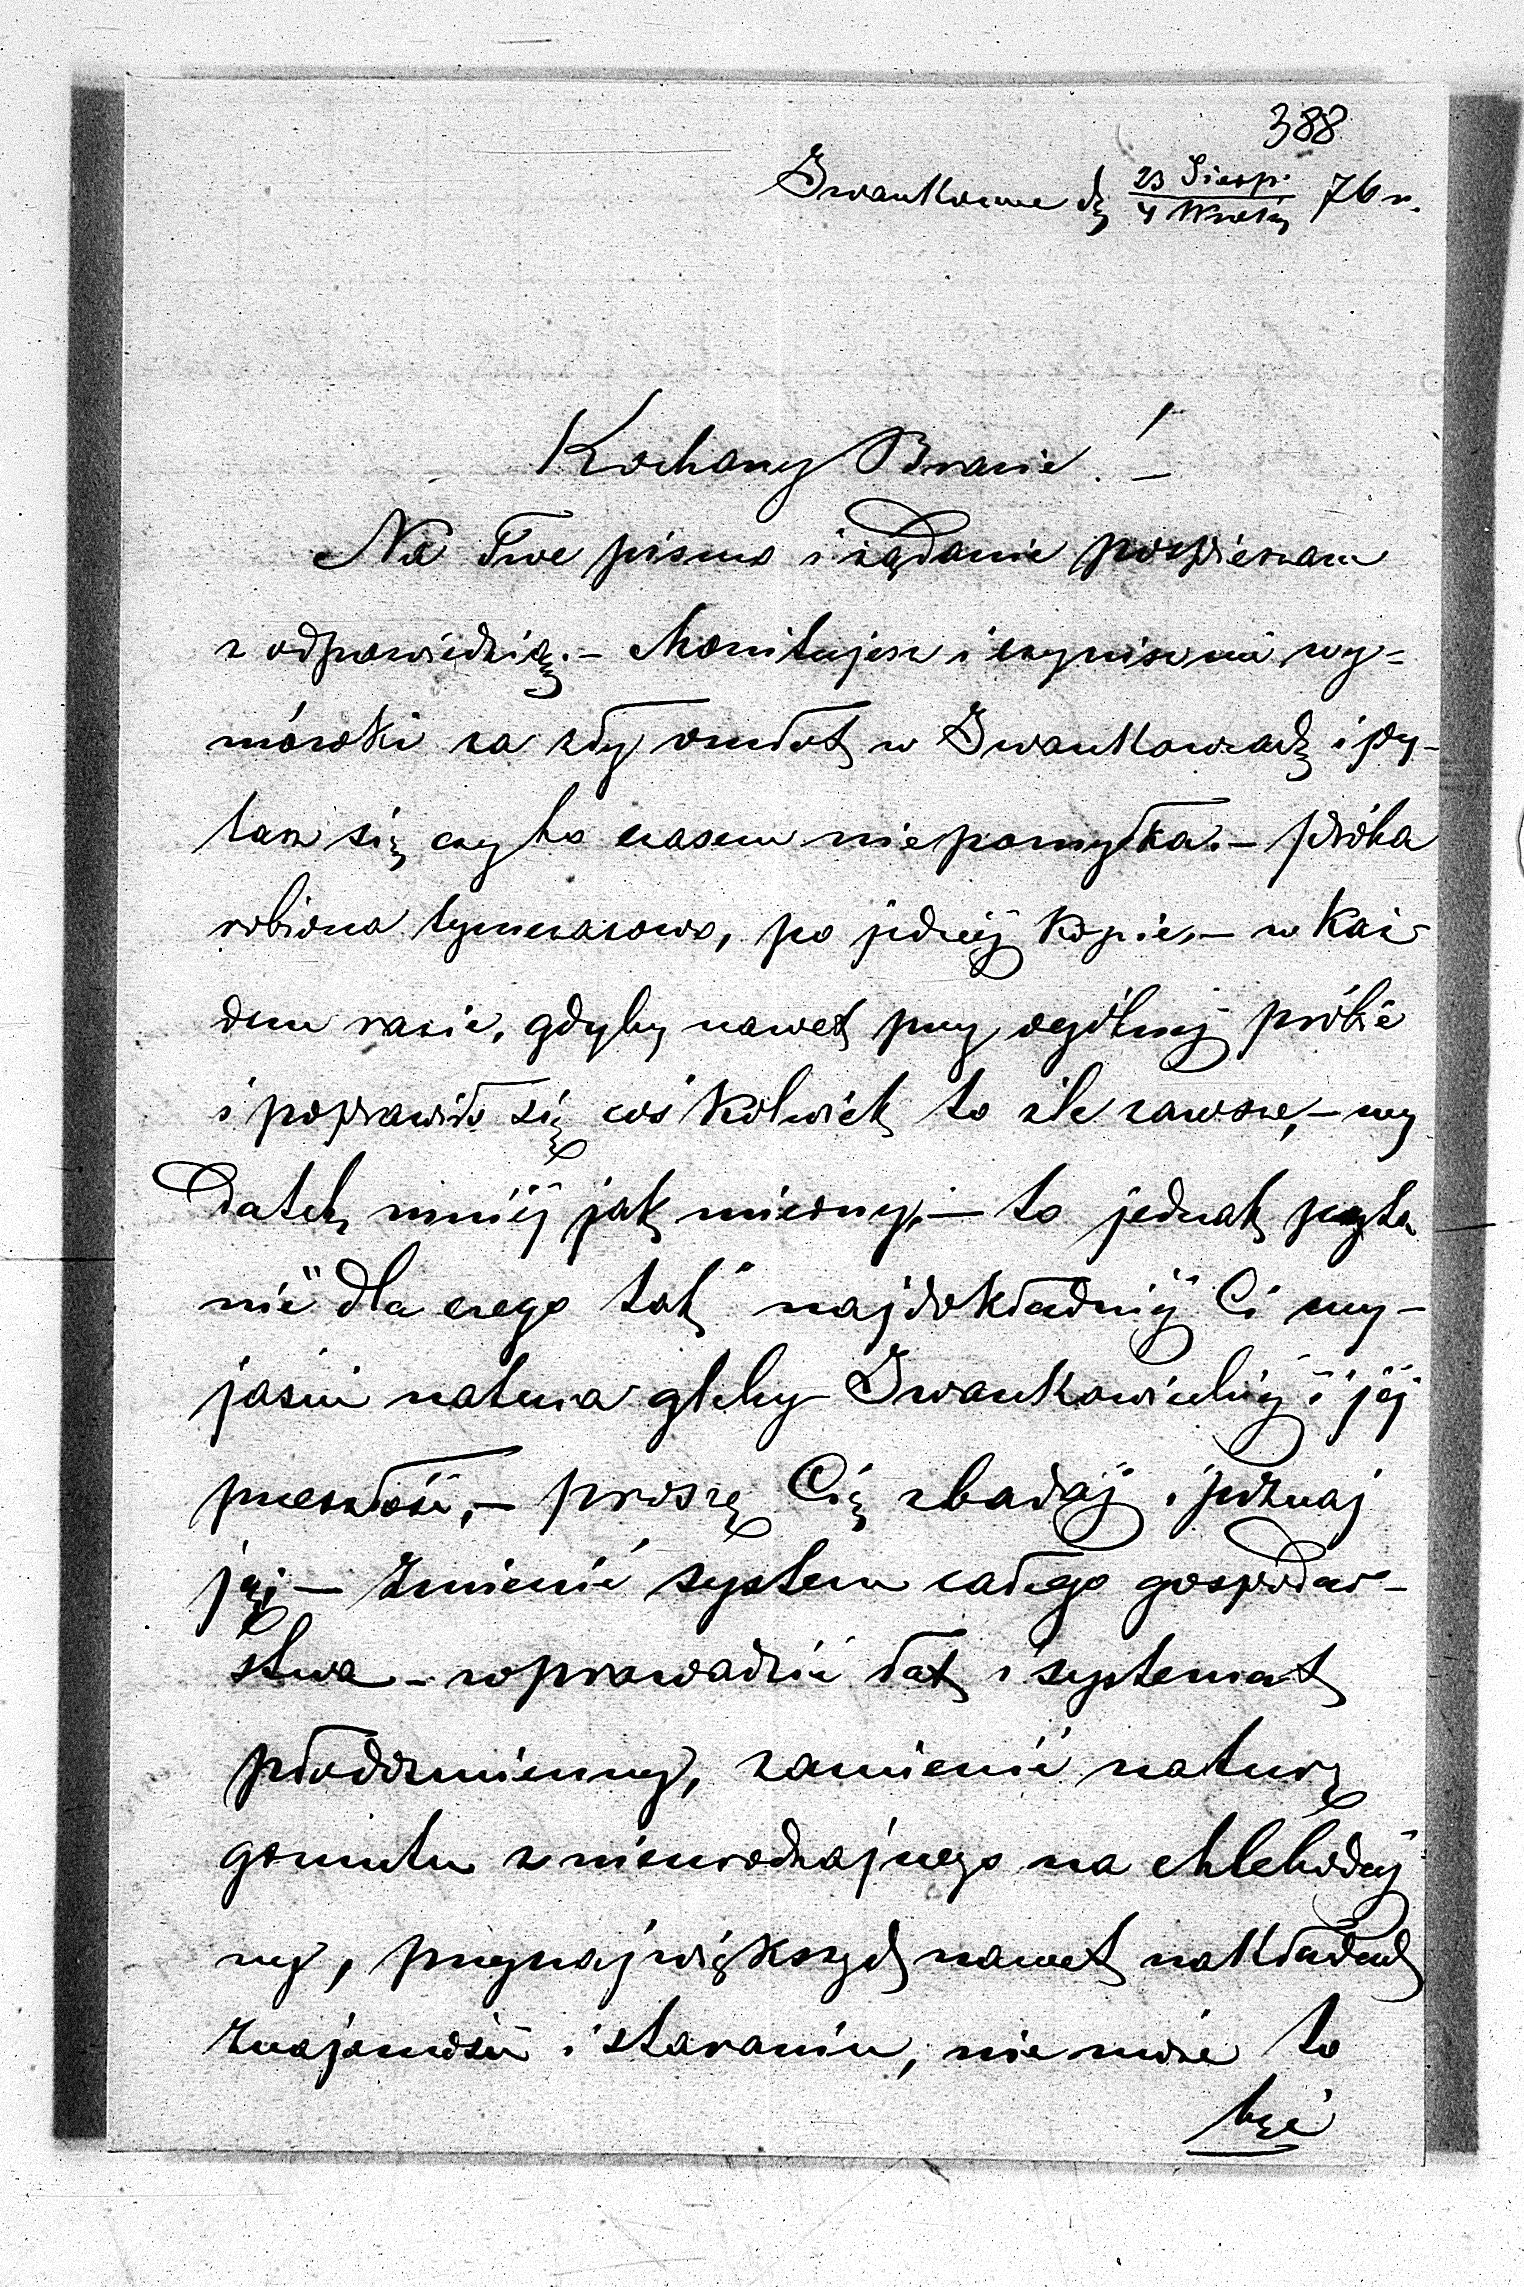 388
Iwankowce d. 23 Sierp. 76 r.
4 Wrześ.
Kochany Bracie!
Na Twe pismo i żądanie pospieszam
z odpowiedzią. – Monitujesz i czynisz mi wy=
mówki za zły omłot w Iwankowcach i py-
tasz się czy to czasem nie pomyłka. – próba
robiona tymczasowo, po jednéj kopie, – w każ-
dem razie, gdyby nawet przy ogólnéj próbie
i poprawiło się cośkolwiek to źle zawsze, – wy
datek mniéj jak mierny, – to jednak pyta
nie "dla czego tak" najdokładniéj Ci wy-
jaśni natura gleby Iwankowieckiéj i jéj
przeszłość, – proszę Cię zbadaj i poznaj
ją – zmienić system całego gospodar-
stwa – wprowadzić ład i systemat
płodozmienny, zamienić naturę
gruntu z nieurodzajnego na chlebodaj
ny, przy największych nawet nakładach
znajomości i staraniu, nie może to
być